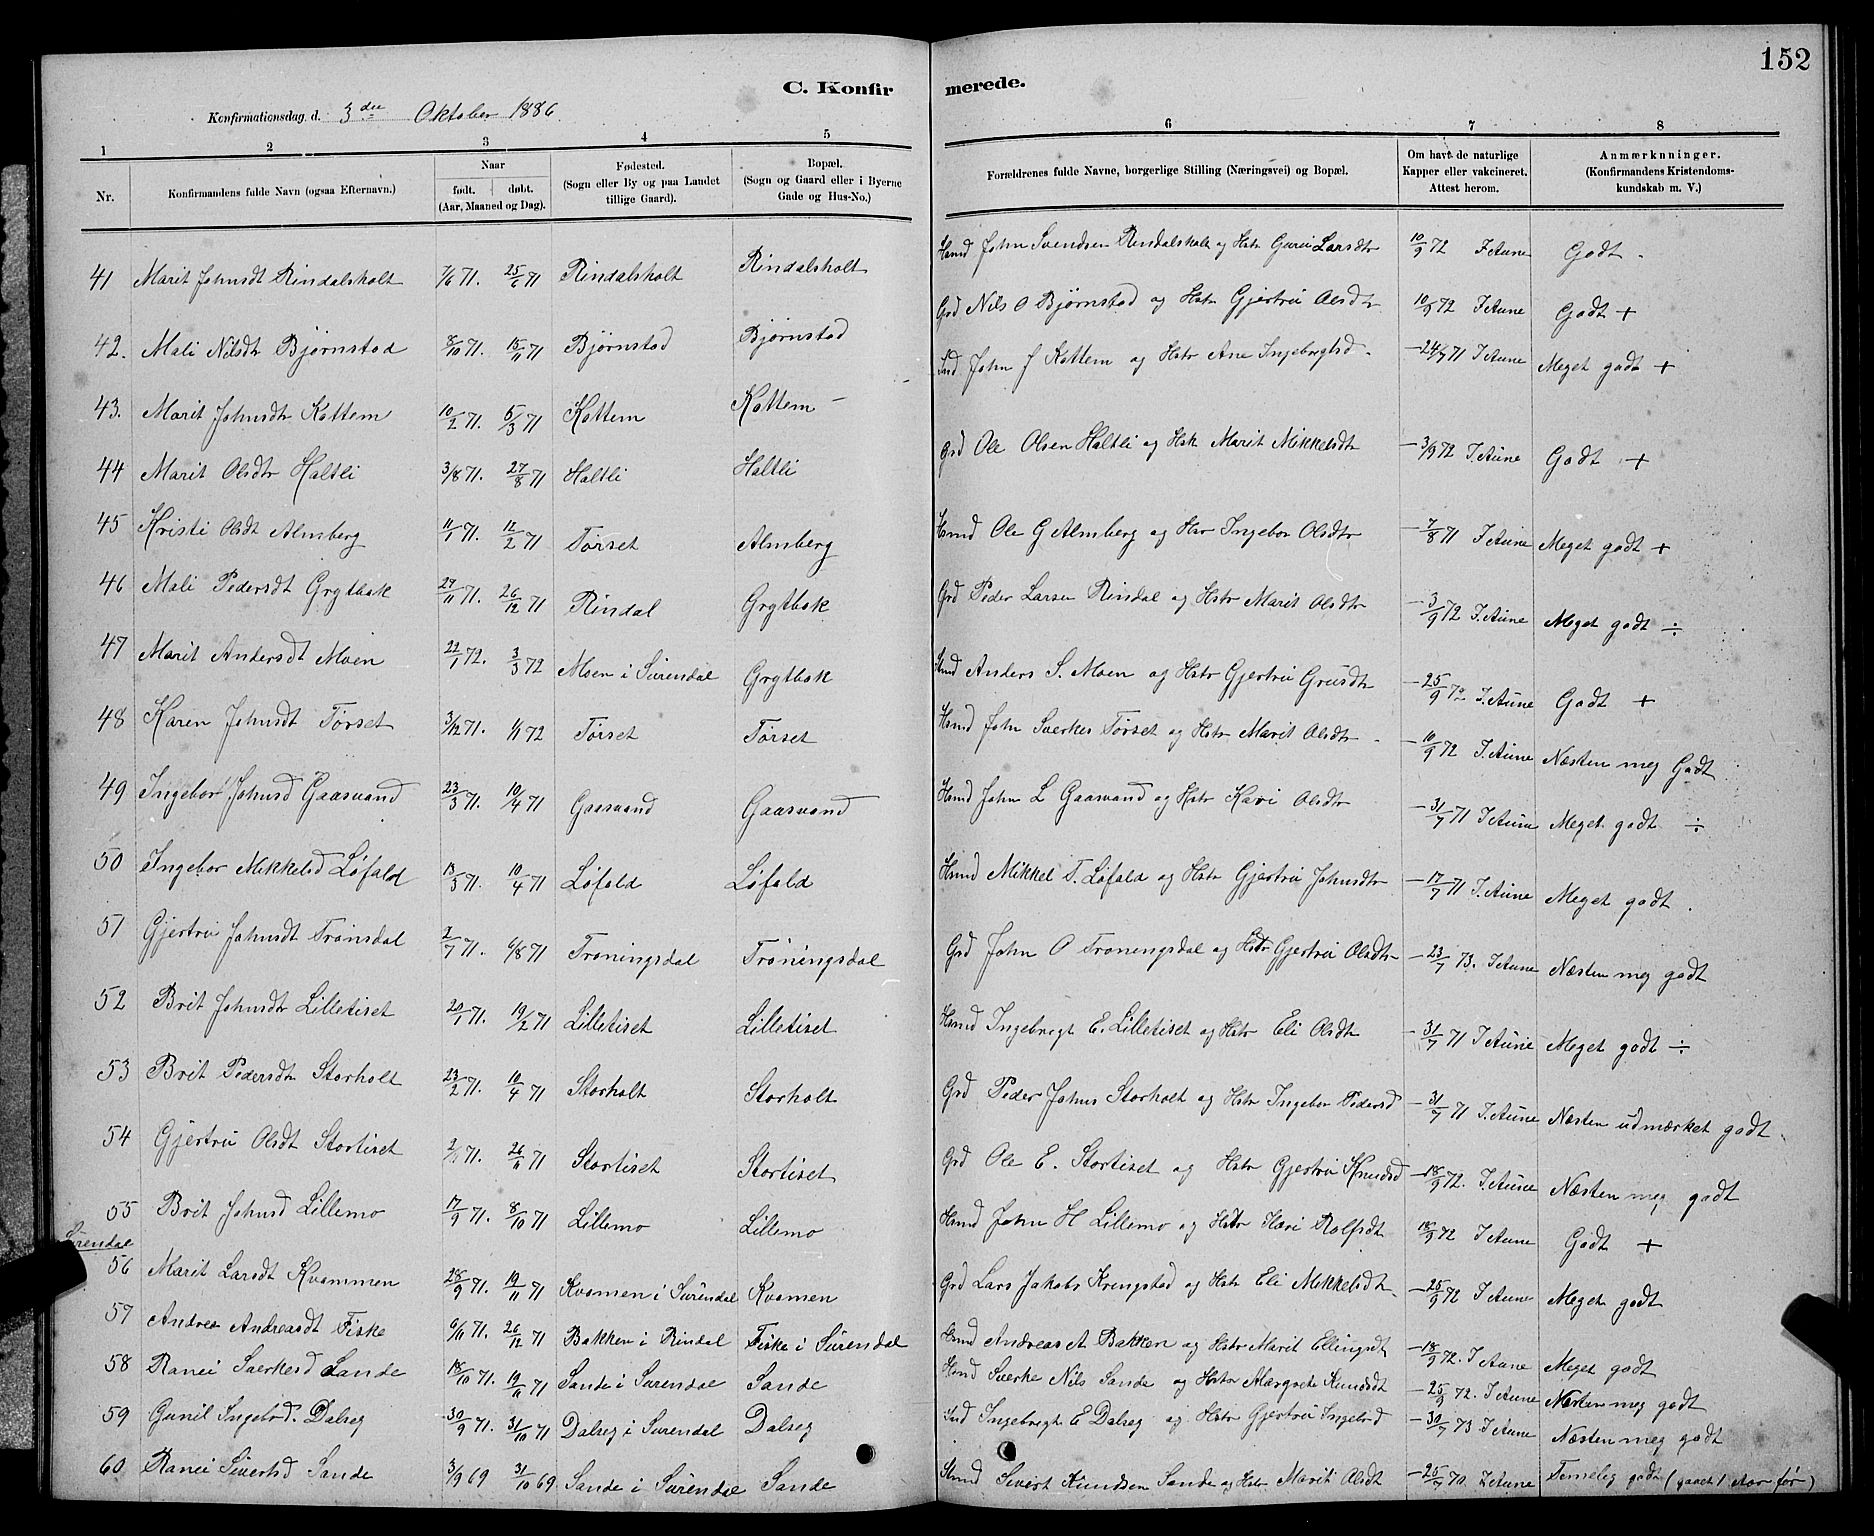 152
C. Konfirmerede.
Konfirmationsdag d. 3die Oktober 1886.
1 2 3 4 5 6 7 8
Nr. Konfirmandens fulde Navn (ogsaa Efternavn.) Naar født. døbt. (Aar, Maaned og Dag). Fødested. (Sogn eller By og paa Landet tillige Gaard). Bopæl. (Sogn og Gaard eller i Byerne Gade og Hus-No.) Forældrenes fulde Navne, borgerlige Stilling (Næringsvei) og Bopæl. Om havt de naturlige Kopper eller vakcineret. Attest herom. Anmærkninger. (Konfirmandens Kristendomskundskab m. V.)
41 Marit Johnsdt Rindalsholt 7/6 71. 25/6 71 Rindalsholt Rindalsholt Hmd John Svendsen Rindalsholt og Hstr Guru Larsdtr 10/9 72 I Aune Godt.
42. Mali Nilsdtr Bjørnstad 8/10 71. 15/11 71 Bjørnstad Bjørnstad Grd Nils O Bjørnstad og Hstr Gjertru Olsdtr 10/9 72 I Aune Godt +
43. Marit Johnsdtr Kattem 10/2 71. 5/3 71 Kattem Kattem Ind John J Kattem og Hstr Ane Ingebrigtsd. 24/7 71 I Aune Meget godt +
44 Marit Olsdtr Haltli 3/8 71. 27/8 71 Haltli Haltli Grd Ole Olsen Haltli og Hstr Marit Mikkelsdtr 3/9 72 I Aune Godt +
45 Kristi Olsdt Almberg 11/1 71. 12/2 71 Tørset Almberg Hmd Ole G Almberg og Hstr Ingebor Olsdtr 7/8 71 I Aune Meget godt +
46 Mali Pedersdt Grytbak 27/11 71. 26/12 71 Rindal Grytbak Grd Peder Larsen Rindal og Hstr Marit Olsdtr 3/9 72 I. Aune Meget godt ÷
47 Marit Andersdt Moen 22/1 72. 3/3 72 Moen i Surendal Grytbak Hmd Anders S. Moen og Hstr Gjertru Grusdtr 25/9 72 I. Aune Godt +
48 Karen Johnsdt Tørset 3/12 71. 1/1 72 Tørset Tørset Hmd John Sverkes Tørset og Hstr Marit Olsdtr 10/9 72 I. Aune Næsten meg Godt
49 Ingebor Johnsd Gaasvand 23/3 71. 10/4 71 Gaasvand Gaasvand Hmd John L Gaasvand og Hstr Kari Olsdtr 31/7 71 I Aune Meget godt ÷
50 Ingebor Mikkelsd Løfald 13/3 71. 10/4 71 Løfald Løfald Hmd Mikkel T. Løfald og Hstr Gjertru Johnsdtr 17/7 71 I. Aune Meget godt.
51 Gjertru Johnsdt Trønsdal 2/7 71. 6/8 71 Troningsdal Troningsdal Grd John O Troningsdal og Hstr Gjertru Olsdtr 23/7 73. I Aune Næsten meg godt
52 Brit Johnsdtr Lilletiset 20/1 71. 19/2 71 Lilletiset Lilletiset Hmd Ingebrigt E. Lilletiset og Hstr Eli Olsdt 31/7 71 I Aune Meget godt ÷
53 Brit Pedersdtr Storholt 23/2 71. 10/4 71 Storholt Storholt Grd Peder Johns Storholt og Hstr Ingebor Pedersd 31/7 71 I. Aune Næsten udmærket godt.
54 Gjertru Olsdt Stortiset 71. 71 Stortiset Stortiset Grd Ole E. Stortiset og Hstr Gjertru Knudsd 18/9 72. I Aune Næsten meg godt
55 Brit Johnsd Lillemo 17/9 71. 8/10 71 Lillemo Lillemo Hmd John H Lillemo og Hstr Kari Rolfsdt 18/9 72 I Aune Godt +
Surendal
56 Marit Larsdt Kvammen 28/9 71. 19/11 71 Kvamen i Surendal Kvamen Grd Lars Jakobs Krengstad og Hstr Eli Mikkelsdt 25/9 72 I Aune Meget godt
57 Andrea Andreasdt Fiske 6/11 71. 26/12 71 Bakken i Rindal Fiske i Surendal Hmd Andreas A Bakken og Hstr Marit Ellingsdt 18/9 72. I Aune Meget godt
58 Ranei Sverkesd Sande 18/10 71. 19/11 71 Sande i Surendal Sande Hmd Sverke Nils Sande og Hstr Margrete Knudsdt 25/9 72. I Aune Næsten meg godt
59 Gunil Ingebrd. Dalseg 30/9 71. 31/10 71 Dalseg i Surendal Dalseg Ind Ingebrigt E Dalseg og Hstr Gjertru Ingebrd 30/7 73 I Aune Næsten meg godt
60 Ranei Sivertsd Sande 3/9 69 31/10 69 Sande i Surendal Sande Hmd Sivert Knudsen Sande og Hstr Marit Olsdt 25/9 72 I Aune Temelig godt (gaaet 1 Aar før)